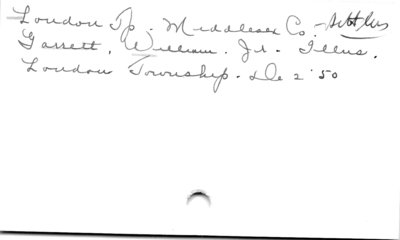 London Tp. Middlesex Co. - Settlers
Garrett, William. Jr. Illus.
London Township. De 2 '50